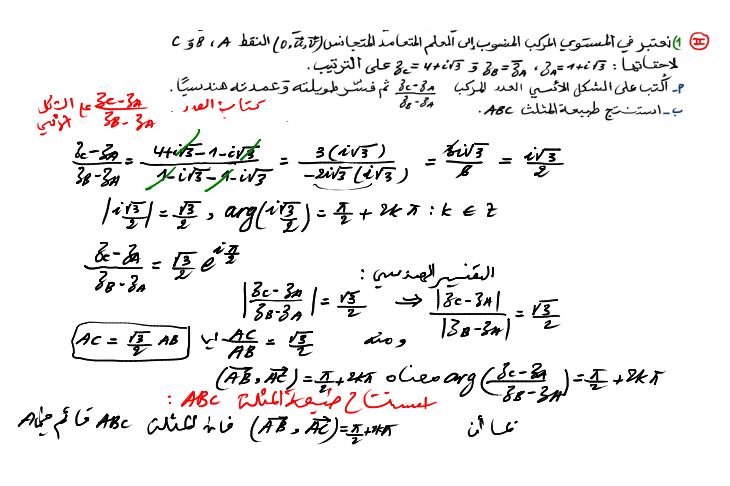 II) 1) نعتبر في المستوي المركب المنسوب إلى المعلم المتعامد المتجانس (O, u⃗, v⃗) النقط A ، B و C
لاحقاتها : z_A = 1+i√3 ، z_B = z̄_A و z_C = 4+i√3 على الترتيب.
أ- أكتب على الشكل الأسي العدد المركب (z_C - z_A)/(z_B - z_A) ثم فسّر طويلته وعمدته هندسيًا.
ب- استنتج طبيعة المثلث ABC.
كتابة العدد (z_C - z_A)/(z_B - z_A) على الشكل الأسي
(z_C - z_A)/(z_B - z_A) = (4+i√3-1-i√3)/(1-i√3-1-i√3) = 3(i√3)/(-2i√3(i√3)) = 3i√3/6 = i√3/2
|i√3/2| = √3/2 , arg(i√3/2) = π/2 + 2kπ : k ∈ Z
(z_C - z_A)/(z_B - z_A) = √3/2 e^{iπ/2}
التفسير الهندسي :
|(z_C - z_A)/(z_B - z_A)| = √3/2 ⇒ |z_C - z_A|/|z_B - z_A| = √3/2
ومنه AC/AB = √3/2 أي AC = √3/2 AB
arg((z_C - z_A)/(z_B - z_A)) = π/2 + 2kπ معناه (AB⃗, AC⃗) = π/2 + 2kπ
استنتاج طبيعة المثلث ABC :
بما أن (AB⃗, AC⃗) = π/2 + 2kπ فان المثلث ABC قائم في A